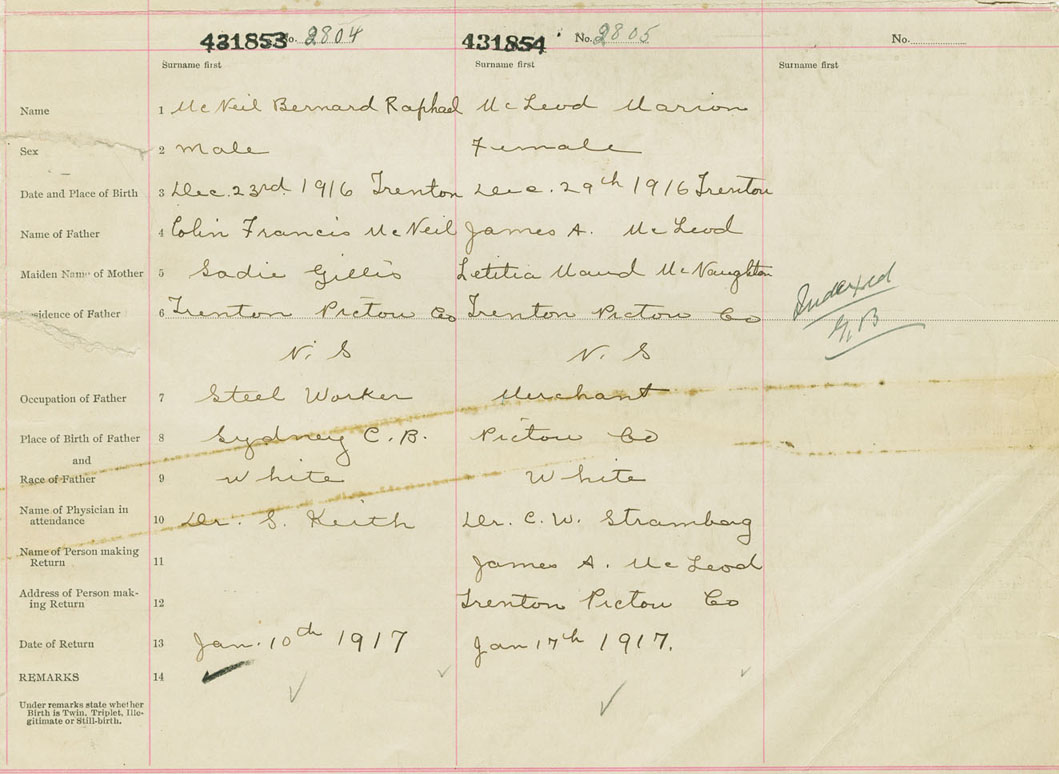 431853 No. 2804 431854 No. 2805 No.
Surname first Surname first Surname first
Name 1 McNeil Bernard Raphael McLeod Marion
Sex 2 Male Female
Date and Place of Birth 3 Dec. 23rd 1916 Trenton Dec. 29th 1916 Trenton
Name of Father 4 Colin Francis McNeil James A. McLeod
Maiden Name of Mother 5 Sadie Gillis Letitia Maud McNaughton
Residence of Father 6 Trenton Pictou Co Trenton Pictou Co
N. S N. S
Indexed
G, B
Occupation of Father 7 Steel Worker Merchant
Place of Birth of Father 8 Sydney C. B. Pictou Co
and
Race of Father 9 White White
Name of Physician in
attendance 10 Dr. S. Keith Dr. C. W. Stramberg
Name of Person making
Return 11 James A. McLeod
Address of Person mak-
ing Return 12 Trenton Pictou Co
Date of Return 13 Jan. 10th 1917 Jan 17th 1917.
REMARKS 14
Under remarks state whether
Birth is Twin, Triplet, Ille-
gitimate or Still-birth.